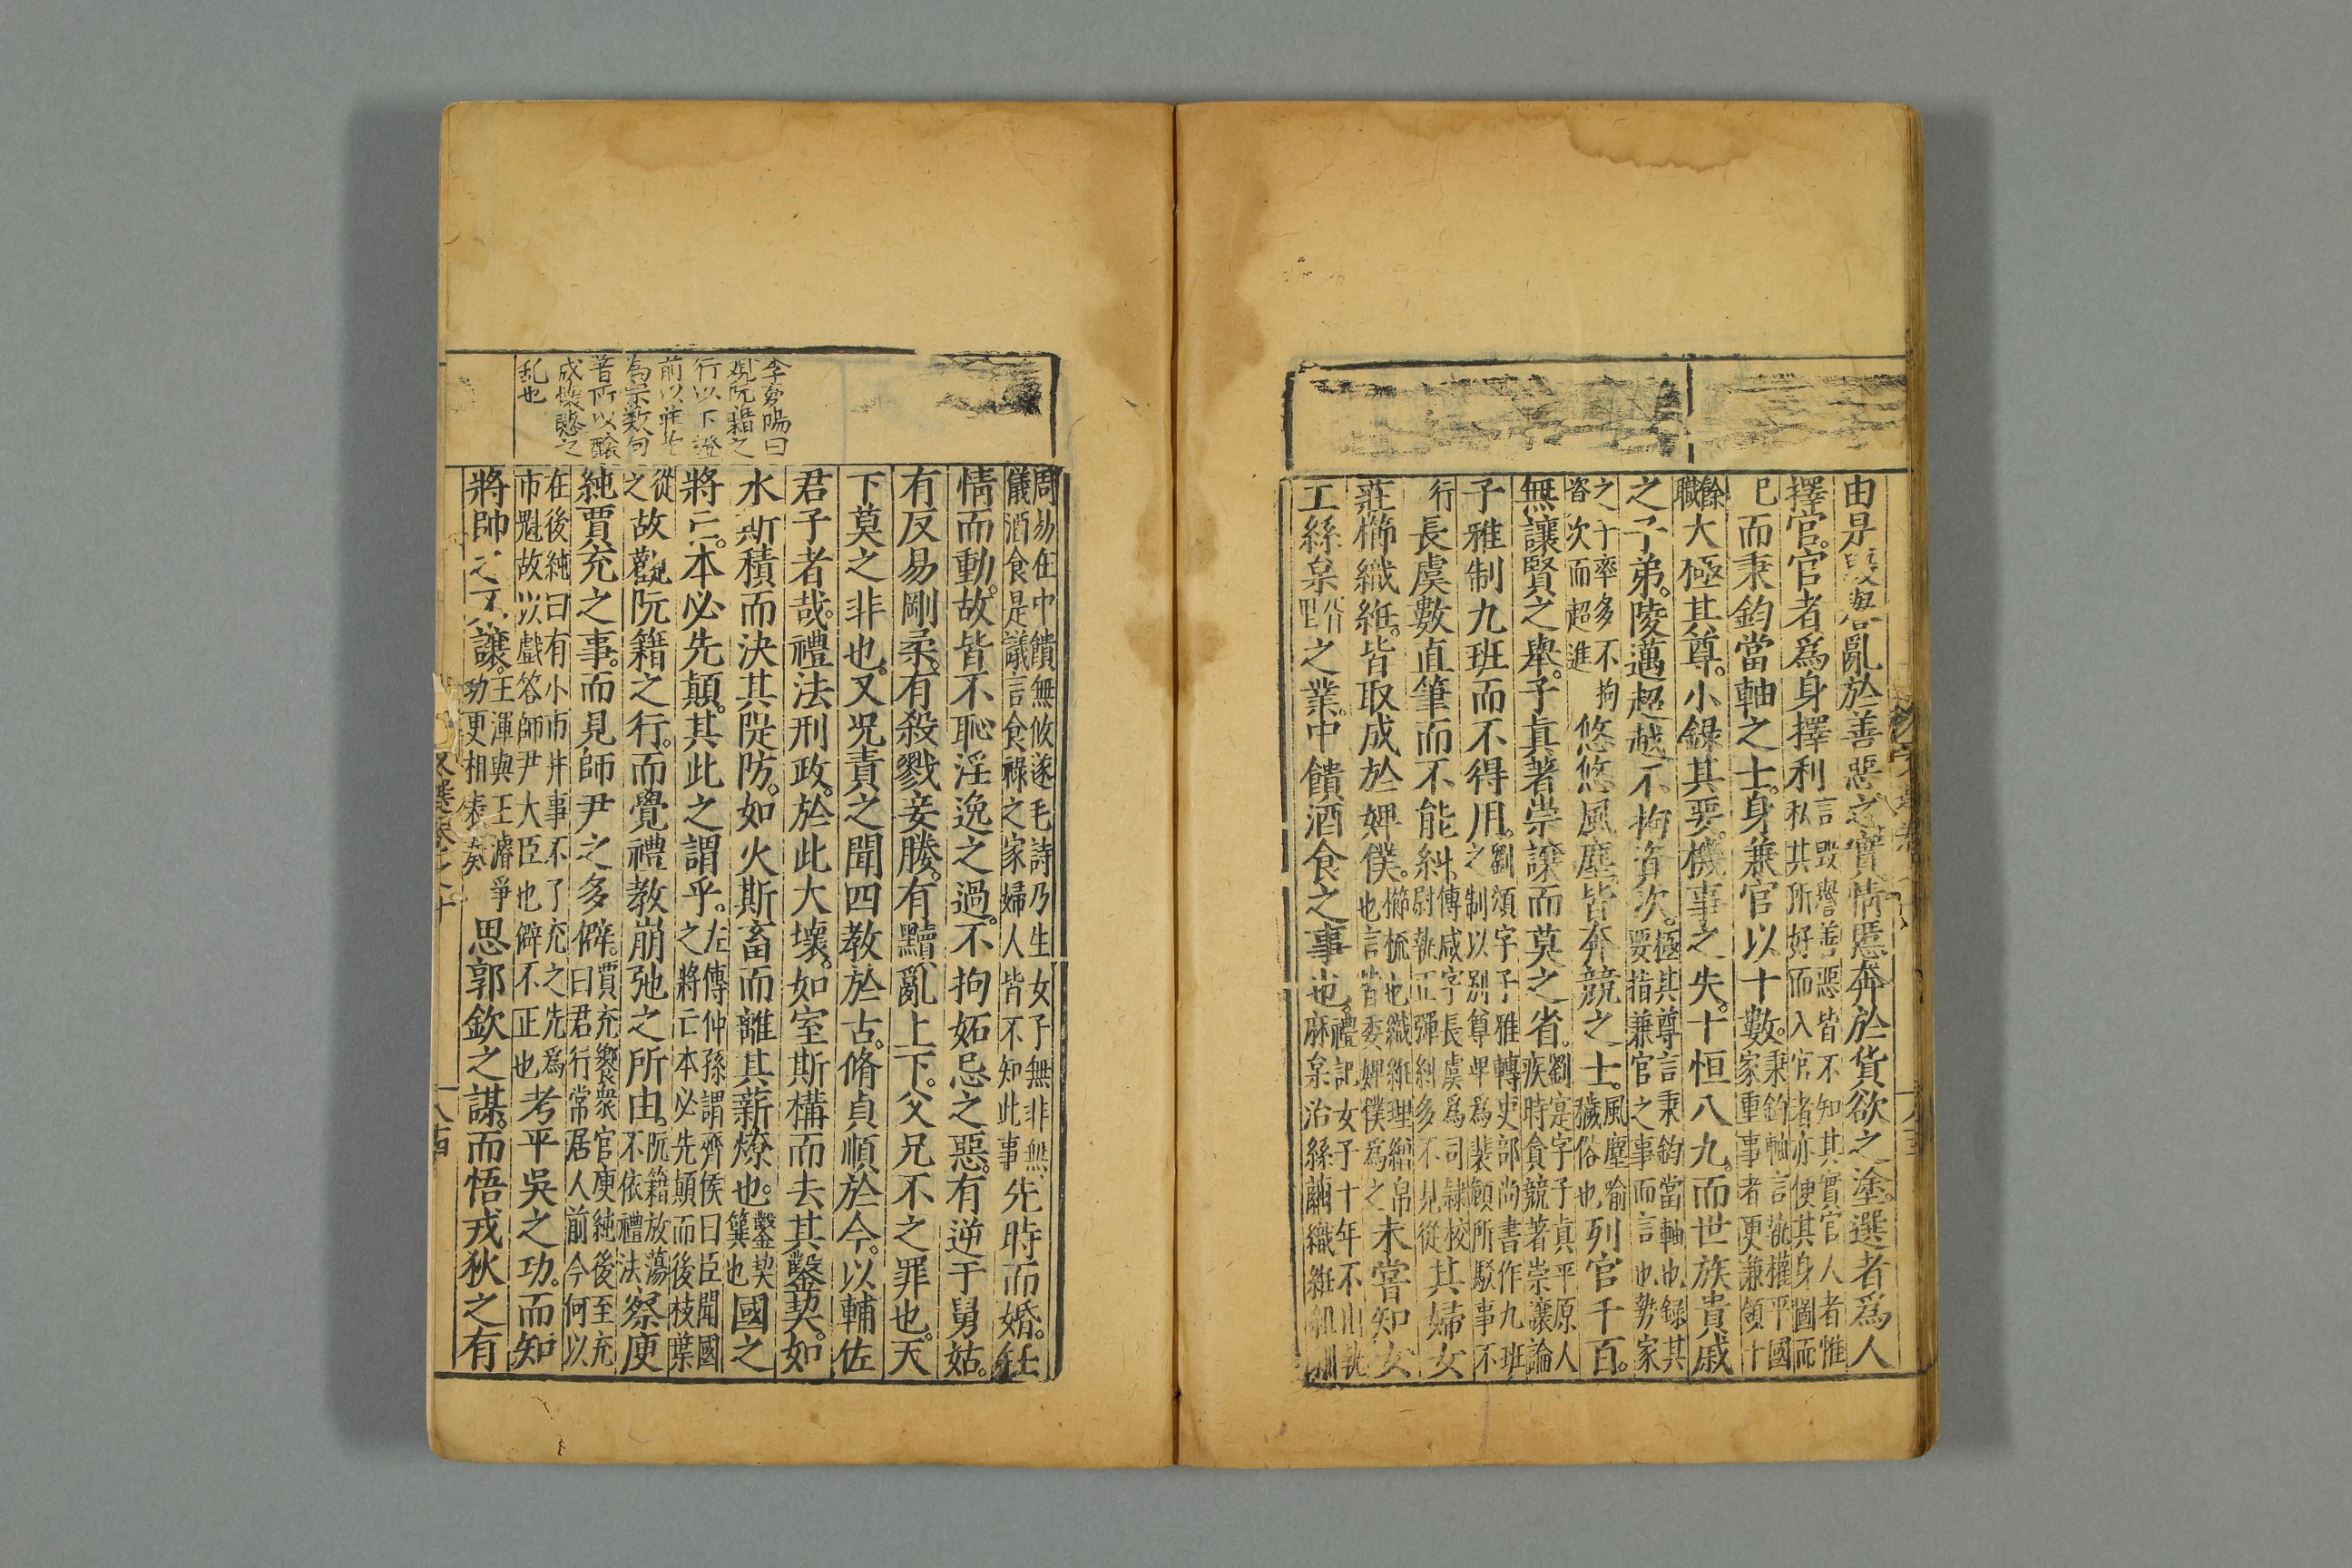 由是毀譽亂於善惡之實情慝奔於貨欲之塗選者爲人
擇官。官者爲身擇利言毀譽善惡皆不知其實官人者惟私其所好而入官者亦使其身圖而
已而秉鈞當軸之士。身兼官以十數。秉鈞軸言執權平國家重事者更兼領十
餘職大極其尊。小錄其要。機事之失。十恒八九。而世族貴戚
之子弟。陵邁超越不拘資次。極其尊言秉鈞當軸也錄其要指兼官之事而言也勢家
之子率多不拘資次而超進悠悠風塵皆奔競之士。風塵喻穢俗也列官千百。
無讓賢之舉。子真著崇讓而莫之省。劉寔字子真平原人疾時貪競著崇讓論
子雅制九班而不得用。劉頌字子雅轉吏部尚書作九班之制以別尊卑爲裴頠所駁事不
行長虞數直筆而不能糾傅咸字長虞爲司隷校尉執正彈糾多不見從其婦女
莊櫛織絍。皆取成於婢僕。櫛梳也織絍理繒帛也言皆委婢僕爲之未嘗知女
工絲枲之業。中饋酒食之事也禮記女子十年不出執麻枲治絲繭織絍組紃
周易在中饋無攸遂毛詩乃生女子無非無儀酒食是議言食祿之家婦人皆不知此事先時而婚。任
情而動。故皆不恥淫逸之過。不拘妬忌之惡。有逆于舅姑。
有反易剛柔。有殺戮妾媵。有黷亂上下。父兄不之罪也。天
下莫之非也。又況責之聞四教於古。脩貞順於今。以輔佐
君子者哉。禮法刑政。於此大壞。如室斯構而去其鑿契。如
水斯積而決其隄防。如火斯畜而離其薪燎也。鑿契簨也國之
將亡。本必先顛。其此之謂乎。左傳仲孫謂齊侯曰臣聞國之將亡本必先顛而後枝葉
從之故觀阮籍之行。而覺禮教崩弛之所由。阮籍放蕩不依禮法察庾
純賈充之事。而見師尹之多僻。賈充饗衆官庾純後至充曰君行常居人前今何以
在後純曰有小市井事不了充之先爲市魁故以戲答師尹大臣也僻不正也考平吳之功。而知
將帥之不讓。王渾與王濬爭功更相表奏思郭欽之謀。而悟戎狄之有
李周陽曰
觀阮籍之
行以下證
前以莊老
為宗數句
著所以釀
成懷愍之
乱也
文選卷之十